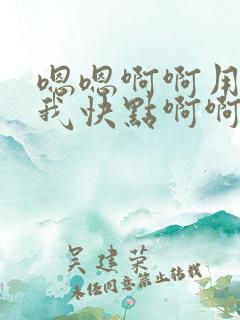 嗯嗯啊啊用
我快點啊啊
吴建荣
未经同意禁止转载